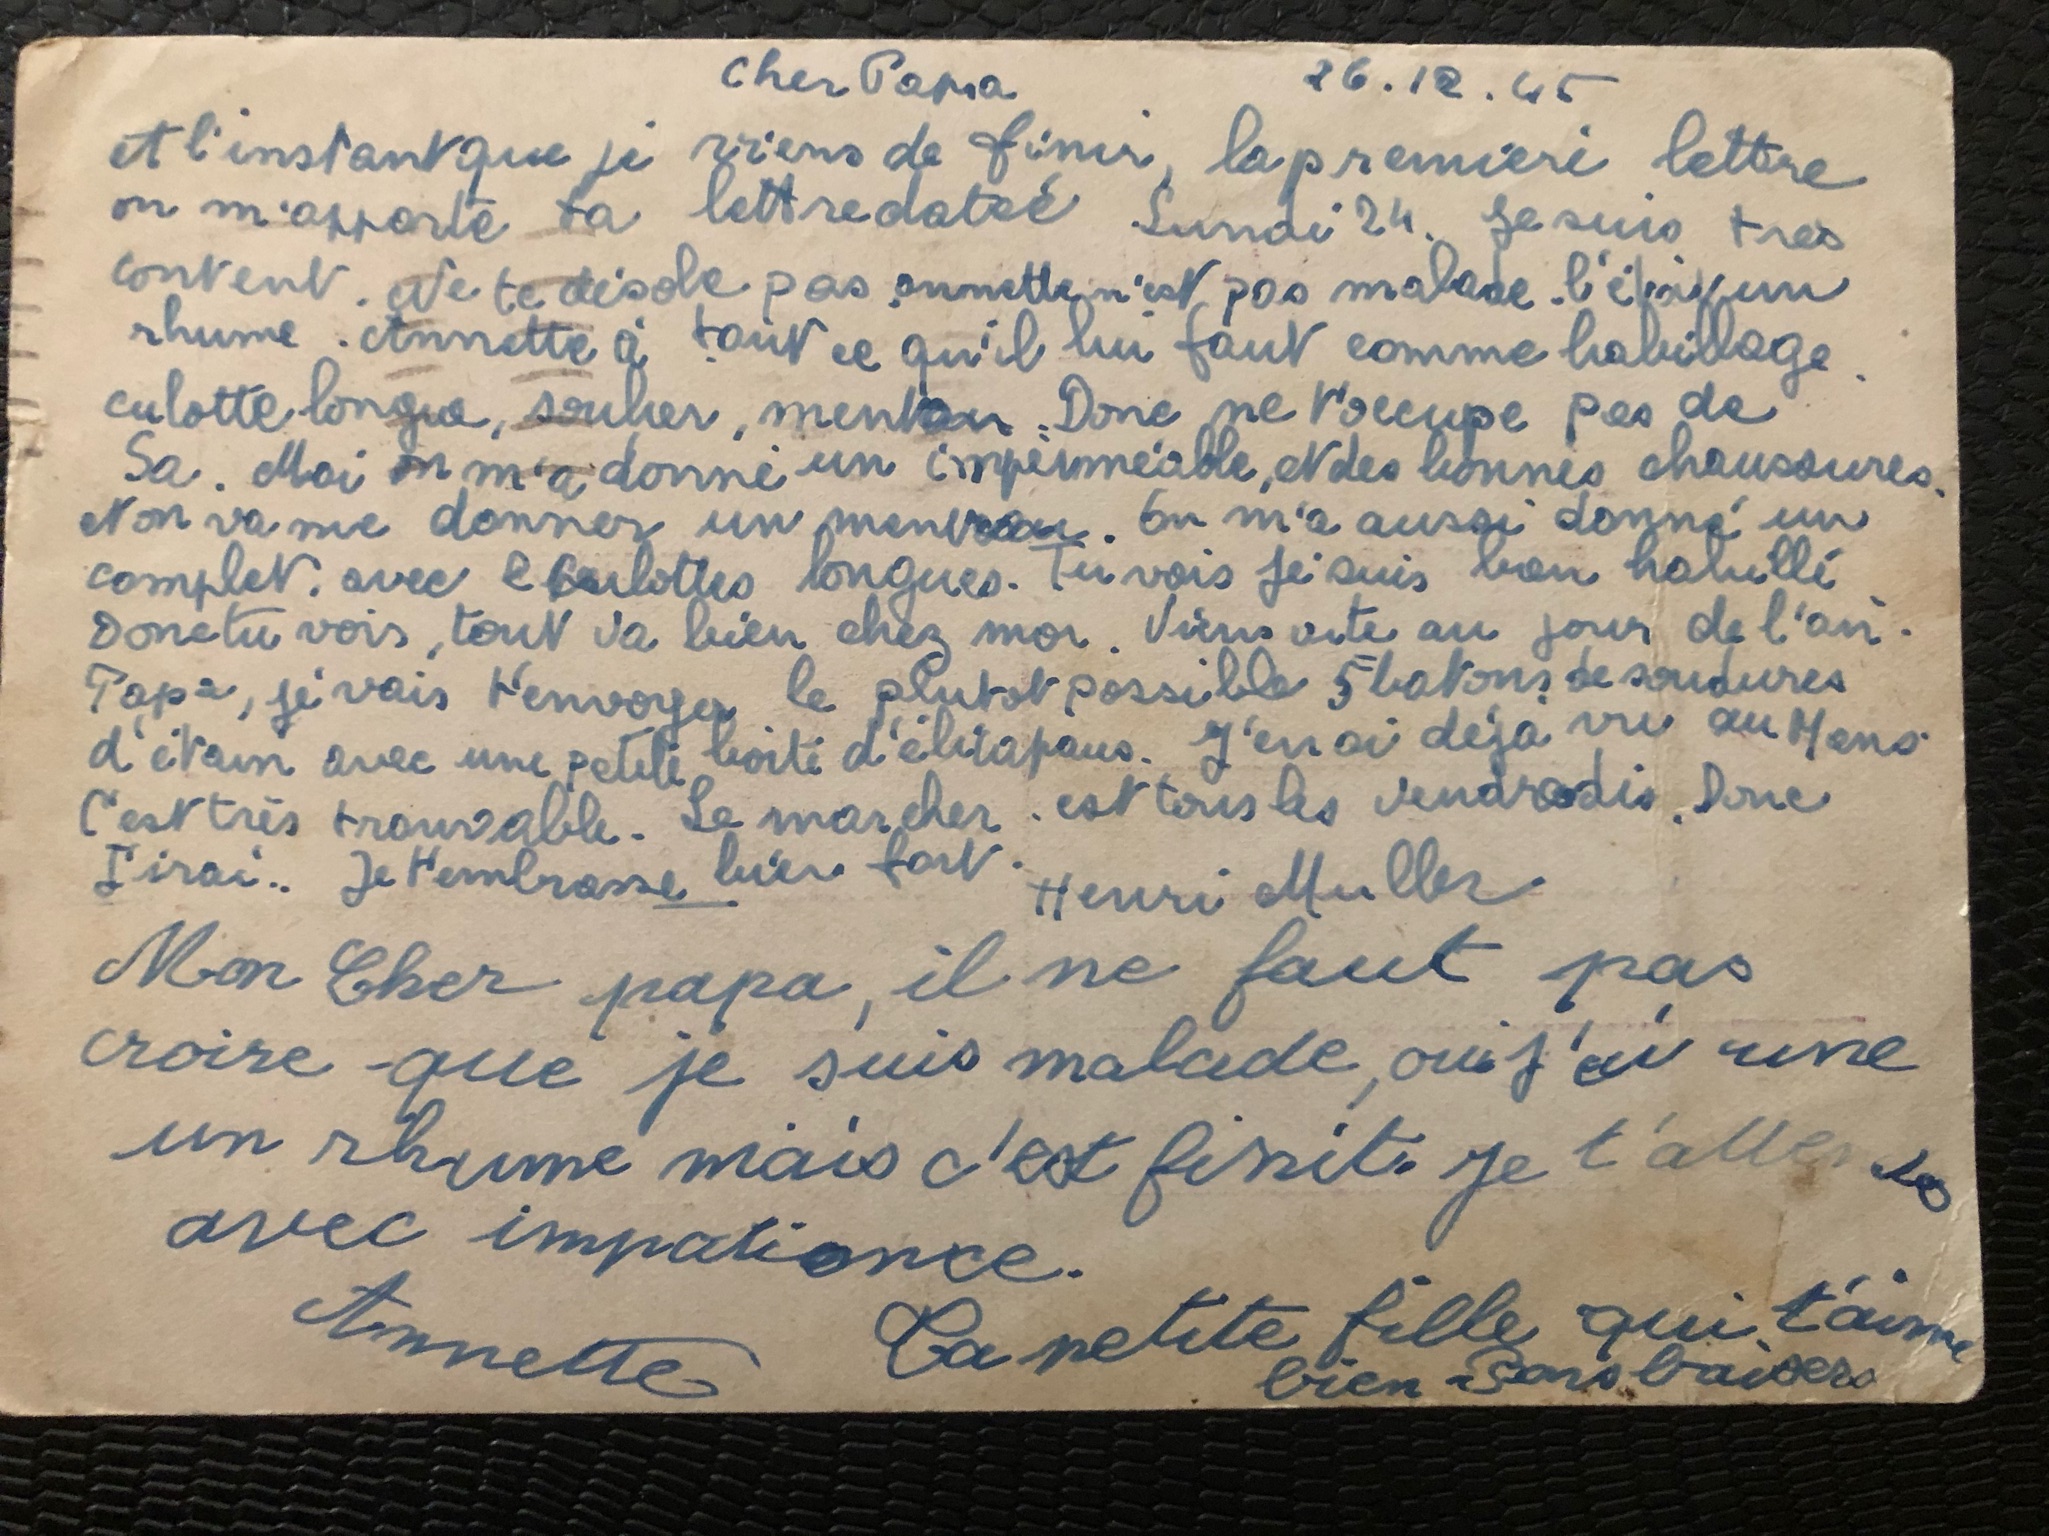 Cher Papa 26.12.45
et l'instant que je viens de finir, la premieri lettre
on m'apporte ta lettre datée Lundi 24. Je suis tres
content. Ne te désole pas annette n'est pas malade. l'était un
rhume. Annette à tout ce qu'il lui faut comme habillage.
culotte longue, soulier, mentau. Donc ne t'occupe pas de
Sa. Moi on m'a donné un imperméable, et des bonnes chaussures.
et on va me donner un menteau. On m'a aussi donné un
complet. avec 2 culottes longues. Tu vois je suis bien habillé
Donc tu vois, tout va bien chez moi. Viens vite au jour de l'an.
Papa, je vais t'envoyer le plutot possible 5 batons de soudures
d'étain avec une petite boite d'
J'en ai déjà vu au Mans
C'est très trouvable. Le marcher est tous les vendredis. Donc
J'irai.. Je t'embrasse bien fort.
Henri Muller
Mon Cher papa, il ne faut pas
croire que je suis malade, oui j'ai une
un rhume mais c'est finit. je t'attends
avec impatience.
Annette
Ta petite fille qui t'aime
bien baisers